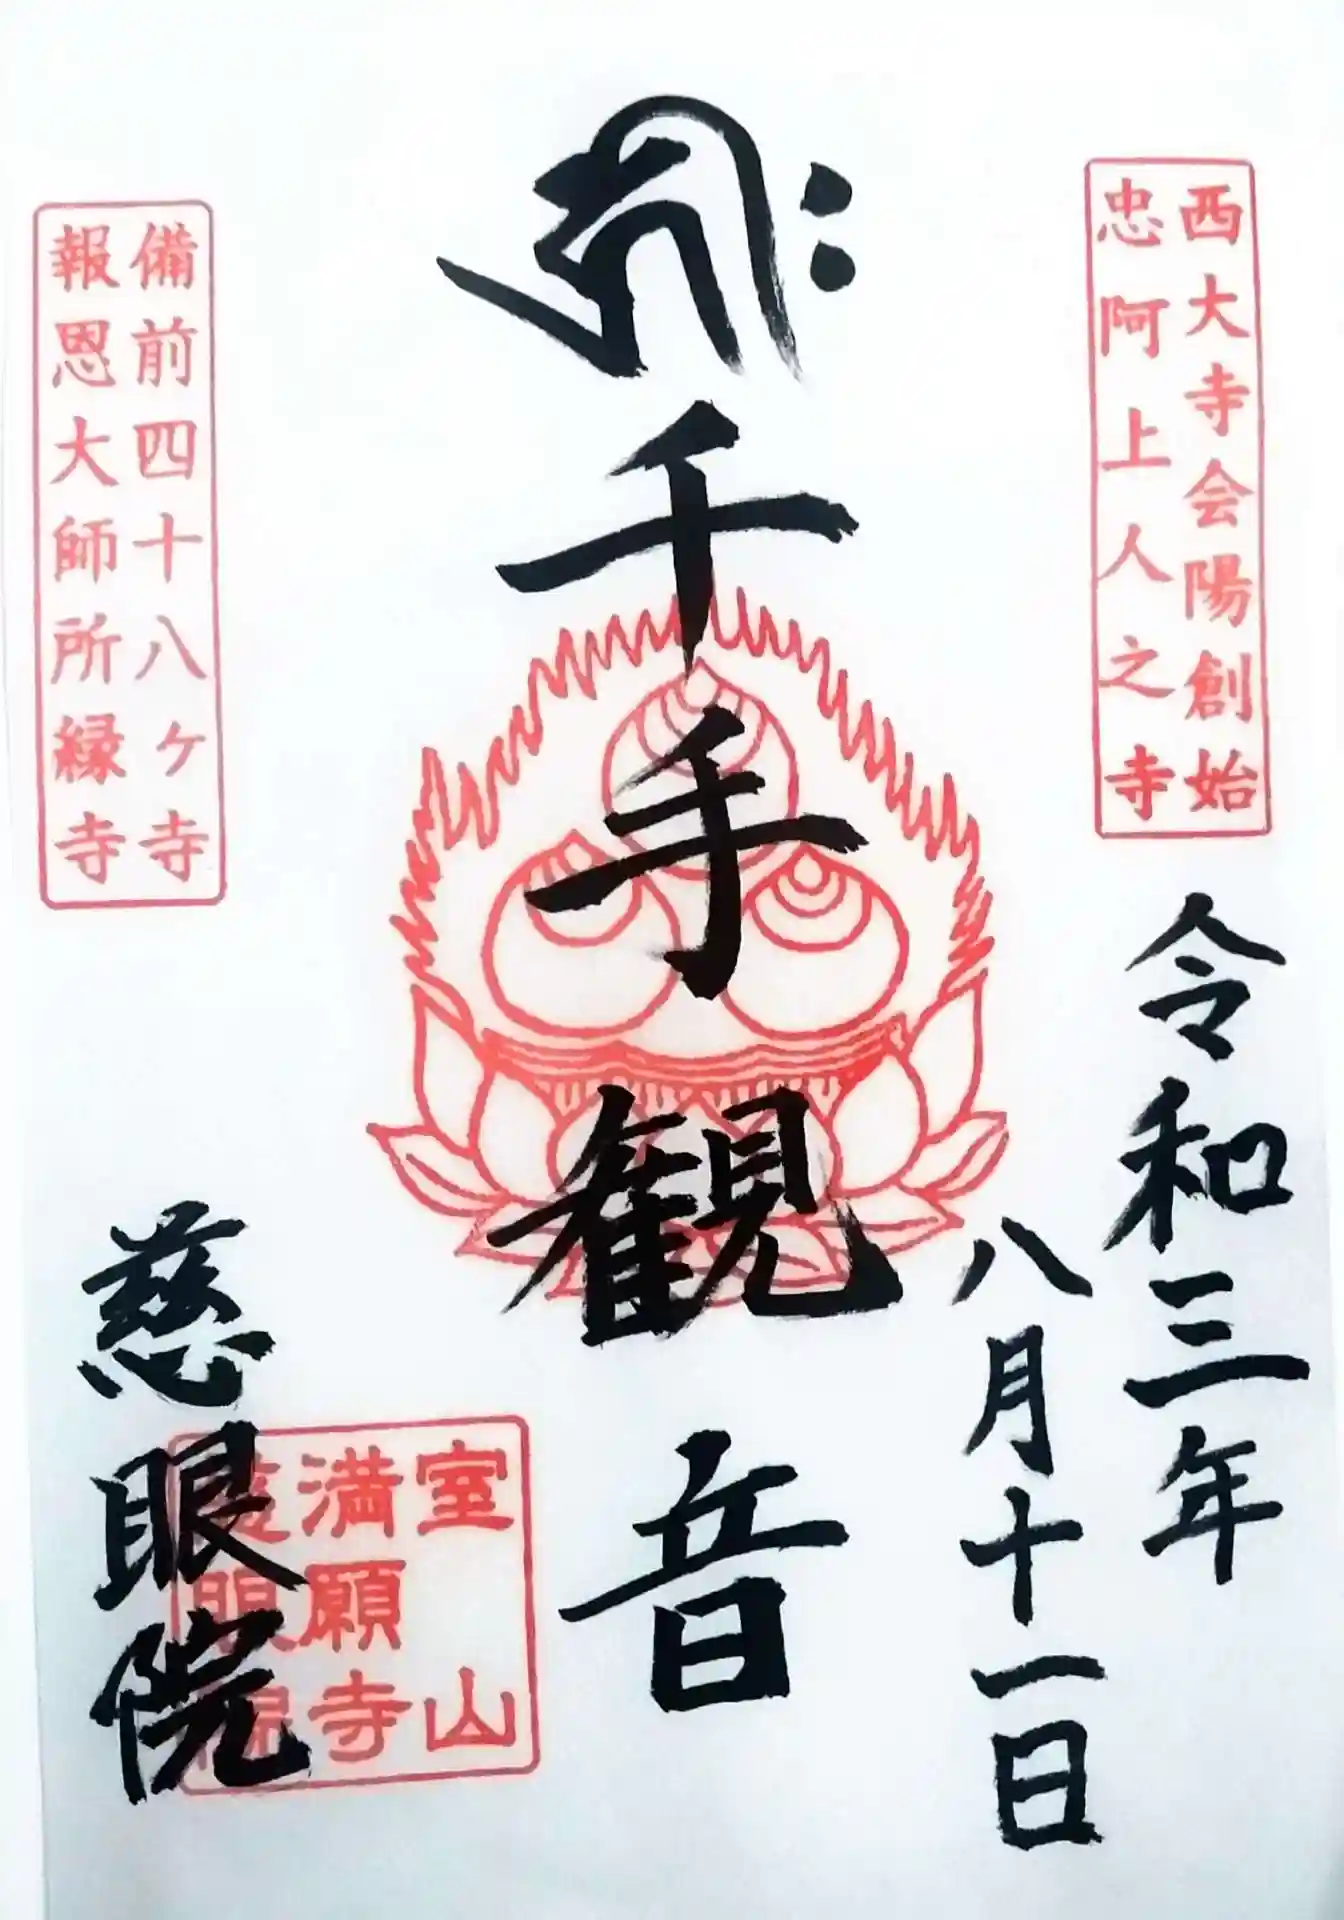 西大寺会陽創始
忠阿上人之寺
令和三年
八月十一日
千手観音
室山
満願寺
慈眼院
慈眼院
備前四十八ヶ寺
報恩大師所縁寺